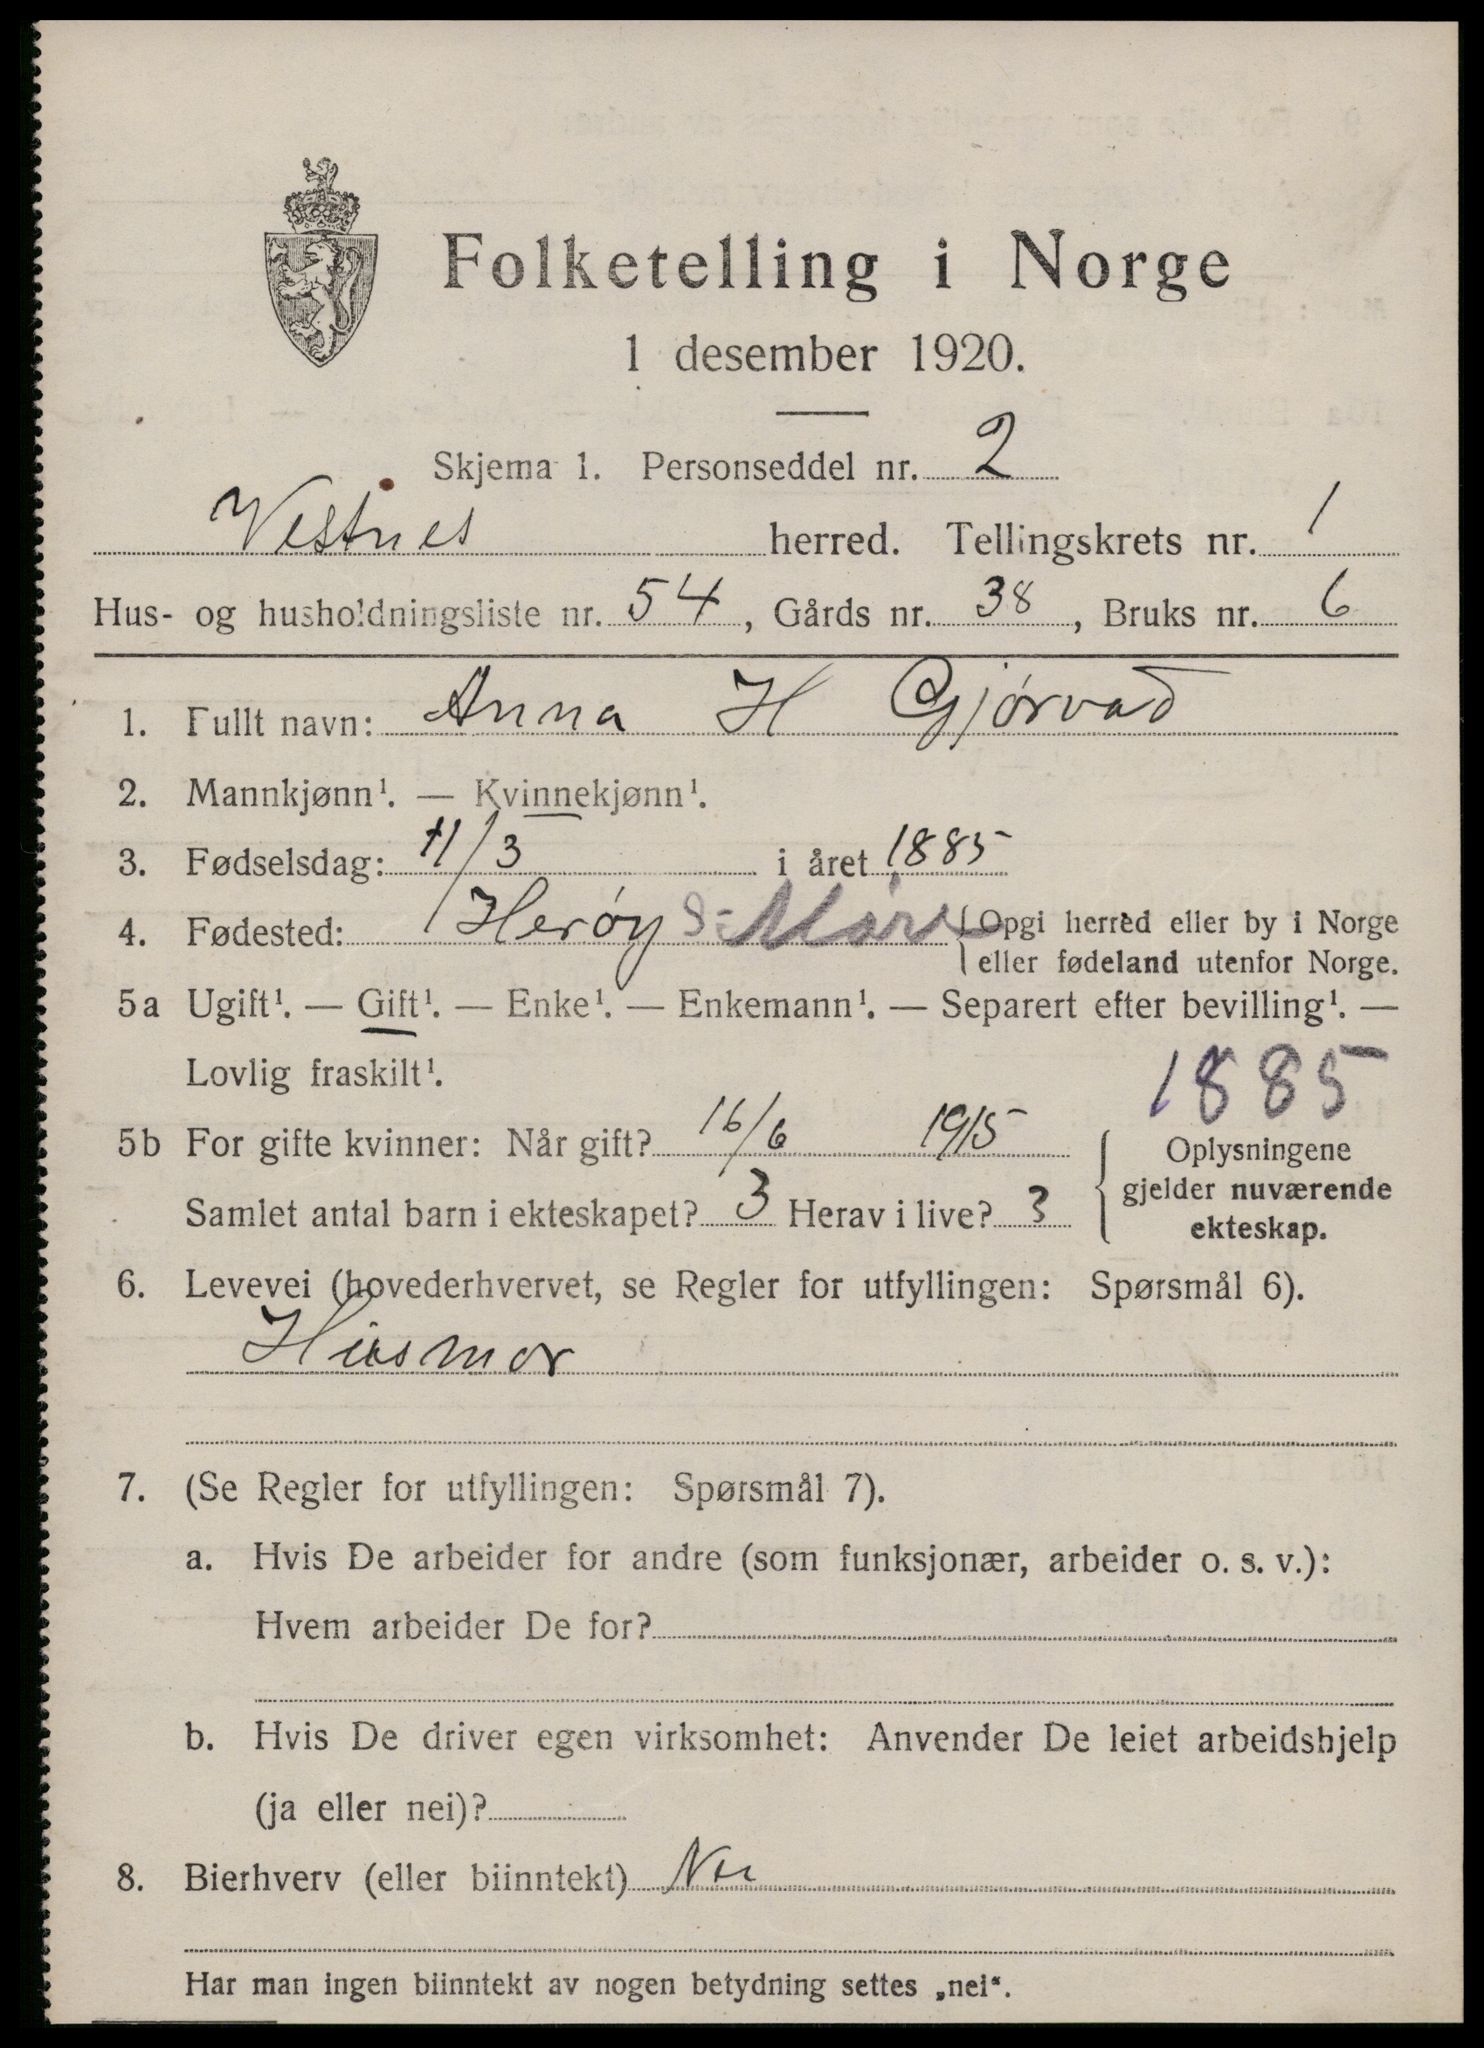 Folketelling i Norge
1 desember 1920.
Skjema 1. Personseddel nr. 2
Vestnes herred. Tellingskrets nr. 1
Hus- og husholdningsliste nr. 54, Gårds nr. 38, Bruks nr. 6
1. Fullt navn: Anna H Gjørvad
2. Mannkjønn¹. — Kvinnekjønn¹.
3. Fødselsdag: 11/3 i året 1885
4. Fødested: Herøy S. Møre {Opgi herred eller by i Norge
eller fødeland utenfor Norge.
5a Ugift¹. — Gift¹. — Enke¹. — Enkemann¹. — Separert efter bevilling¹. —
Lovlig fraskilt¹.
1885
5b For gifte kvinner: Når gift? 16/6 1915
Samlet antal barn i ekteskapet? 3 Herav i live? 3
Oplysningene
gjelder nuværende
ekteskap.
6. Levevei (hovederhvervet, se Regler for utfyllingen: Spørsmål 6).
Husmor
7. (Se Regler for utfyllingen: Spørsmål 7).
a. Hvis De arbeider for andre (som funksjonær, arbeider o. s. v.):
Hvem arbeider De for?
b. Hvis De driver egen virksomhet: Anvender De leiet arbeidshjelp
(ja eller nei)?
8. Bierhverv (eller biinntekt) Nei
Har man ingen biinntekt av nogen betydning settes „nei“.